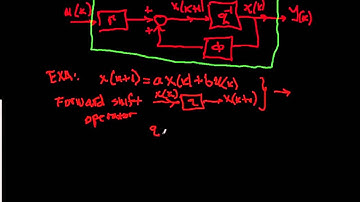 u(k) Γ + x(k+1) q⁻¹ x(k) y(k)
+ Φ
EXA: x(k+1) = a x(k) + b u(k)
Forward shift x(k) q x(k+1)
operator
q